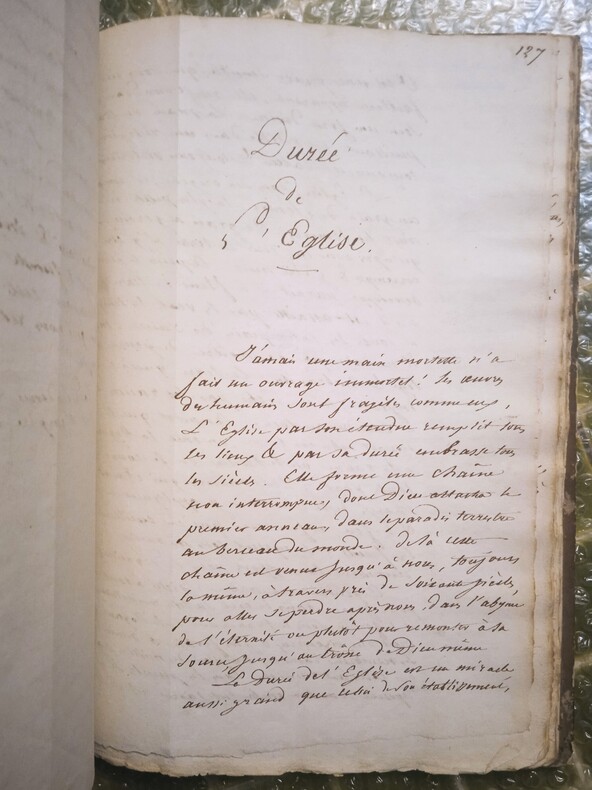 127
Durée
de
l'Eglise.
Jamais une main mortelle n'a
fait un ouvrage immortel! les œuvres
des humains sont fragiles comme eux.
L'Eglise par son étendue remplit tous
les lieux & par sa durée embrasse tous
les siècles. Elle forme une chaîne
non interrompue, dont Dieu attacha le
premier anneau, dans le paradis terrestre
au berceau du monde. de là cette
chaîne est venue jusqu'à nous, toujours
la même, à travers près de soixante siècles,
pour aller se perdre après nous dans l'abyme
de l'éternité ou plutôt pour remonter à sa
source jusqu'au trône de Dieu même
La Durée de l'Eglise est un miracle
aussi grand que celui de son établissement,